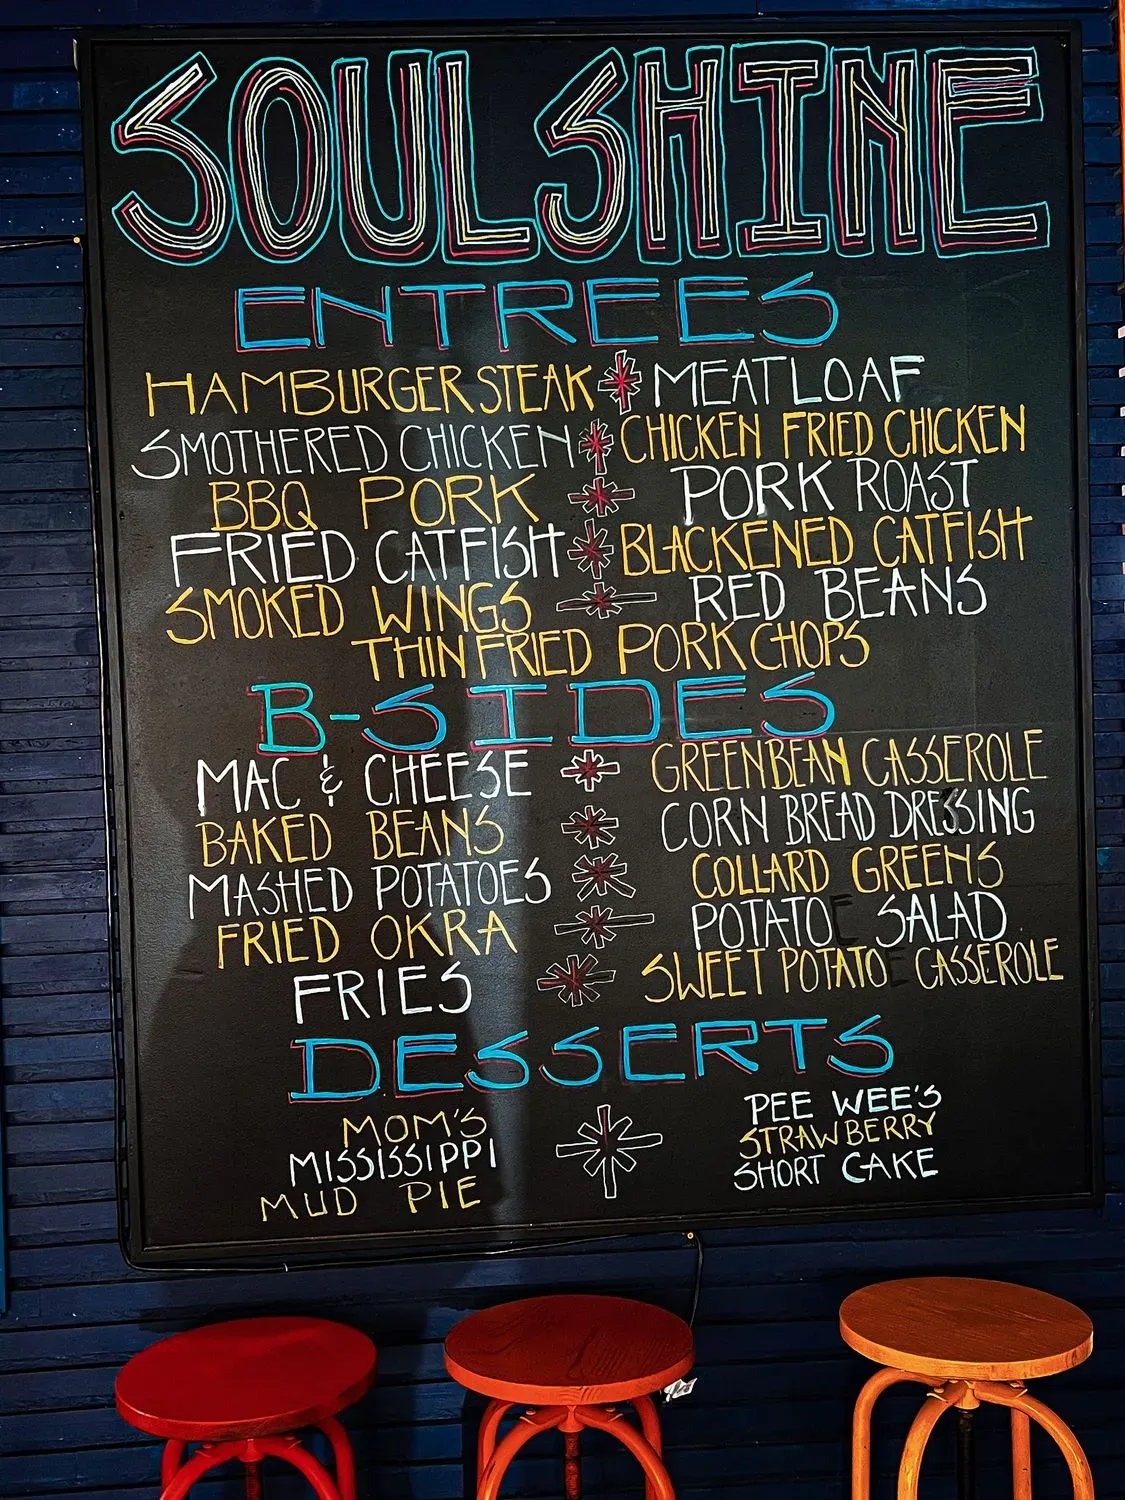 SOULSHINE
ENTREES
HAMBURGER STEAK MEATLOAF
SMOTHERED CHICKEN CHICKEN FRIED CHICKEN
BBQ PORK PORK ROAST
FRIED CATFISH BLACKENED CATFISH
SMOKED WINGS RED BEANS
THIN FRIED PORK CHOPS
B-SIDES
MAC & CHEESE GREENBEAN CASSEROLE
BAKED BEANS CORN BREAD DRESSING
MASHED POTATOES COLLARD GREENS
FRIED OKRA POTATO SALAD
FRIES SWEET POTATO CASSEROLE
DESSERTS
MOM'S
MISSISSIPPI
MUD PIE
PEE WEE'S
STRAWBERRY
SHORT CAKE